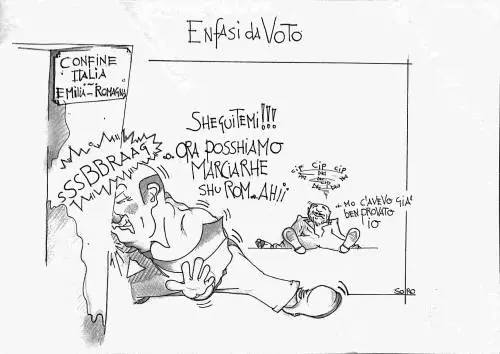 Enfasi da VOTO
CONFINE
ITALIA
EMILIA-ROMAGNA
SSSBBRAAG
SHEGUITEMI!!!
ORA POSSHIAMO
MARCIARHE
SHU ROM..AHII
CIP CIP CIP
..MO C'AVEVO GIA'
BEN PROVATO
IO